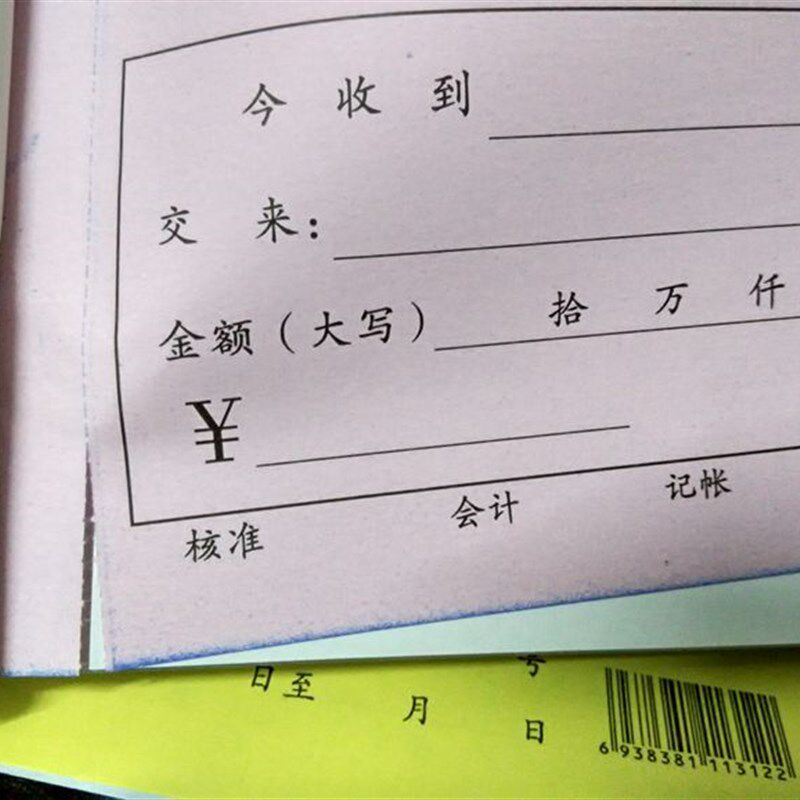 今收到
交来：
金额（大写） 拾 万 仟
¥
核准 会计 记帐
号
日至 月 日
6 938381 113122